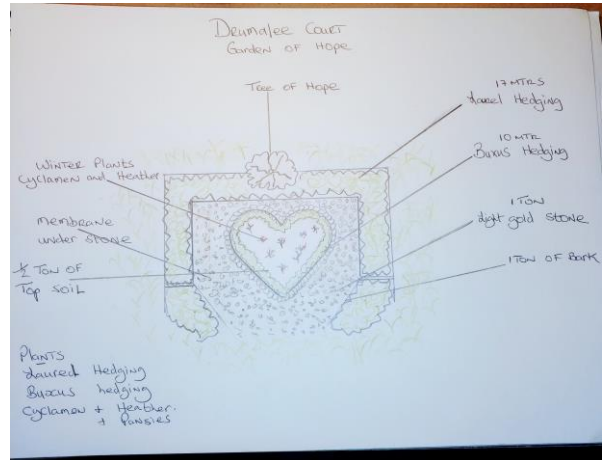 Drumalee Court
Garden of Hope
Tree of Hope
17 MTRS
Laurel Hedging
10 MTR
Buxus Hedging
Winter Plants
Cyclamen and Heather
1 Ton
Light gold stone
Membrane
under stone
1 Ton of Bark
½ Ton of
Top soil
Plants
Laurel Hedging
Buxus hedging
Cyclamen + Heather.
+ Pansies